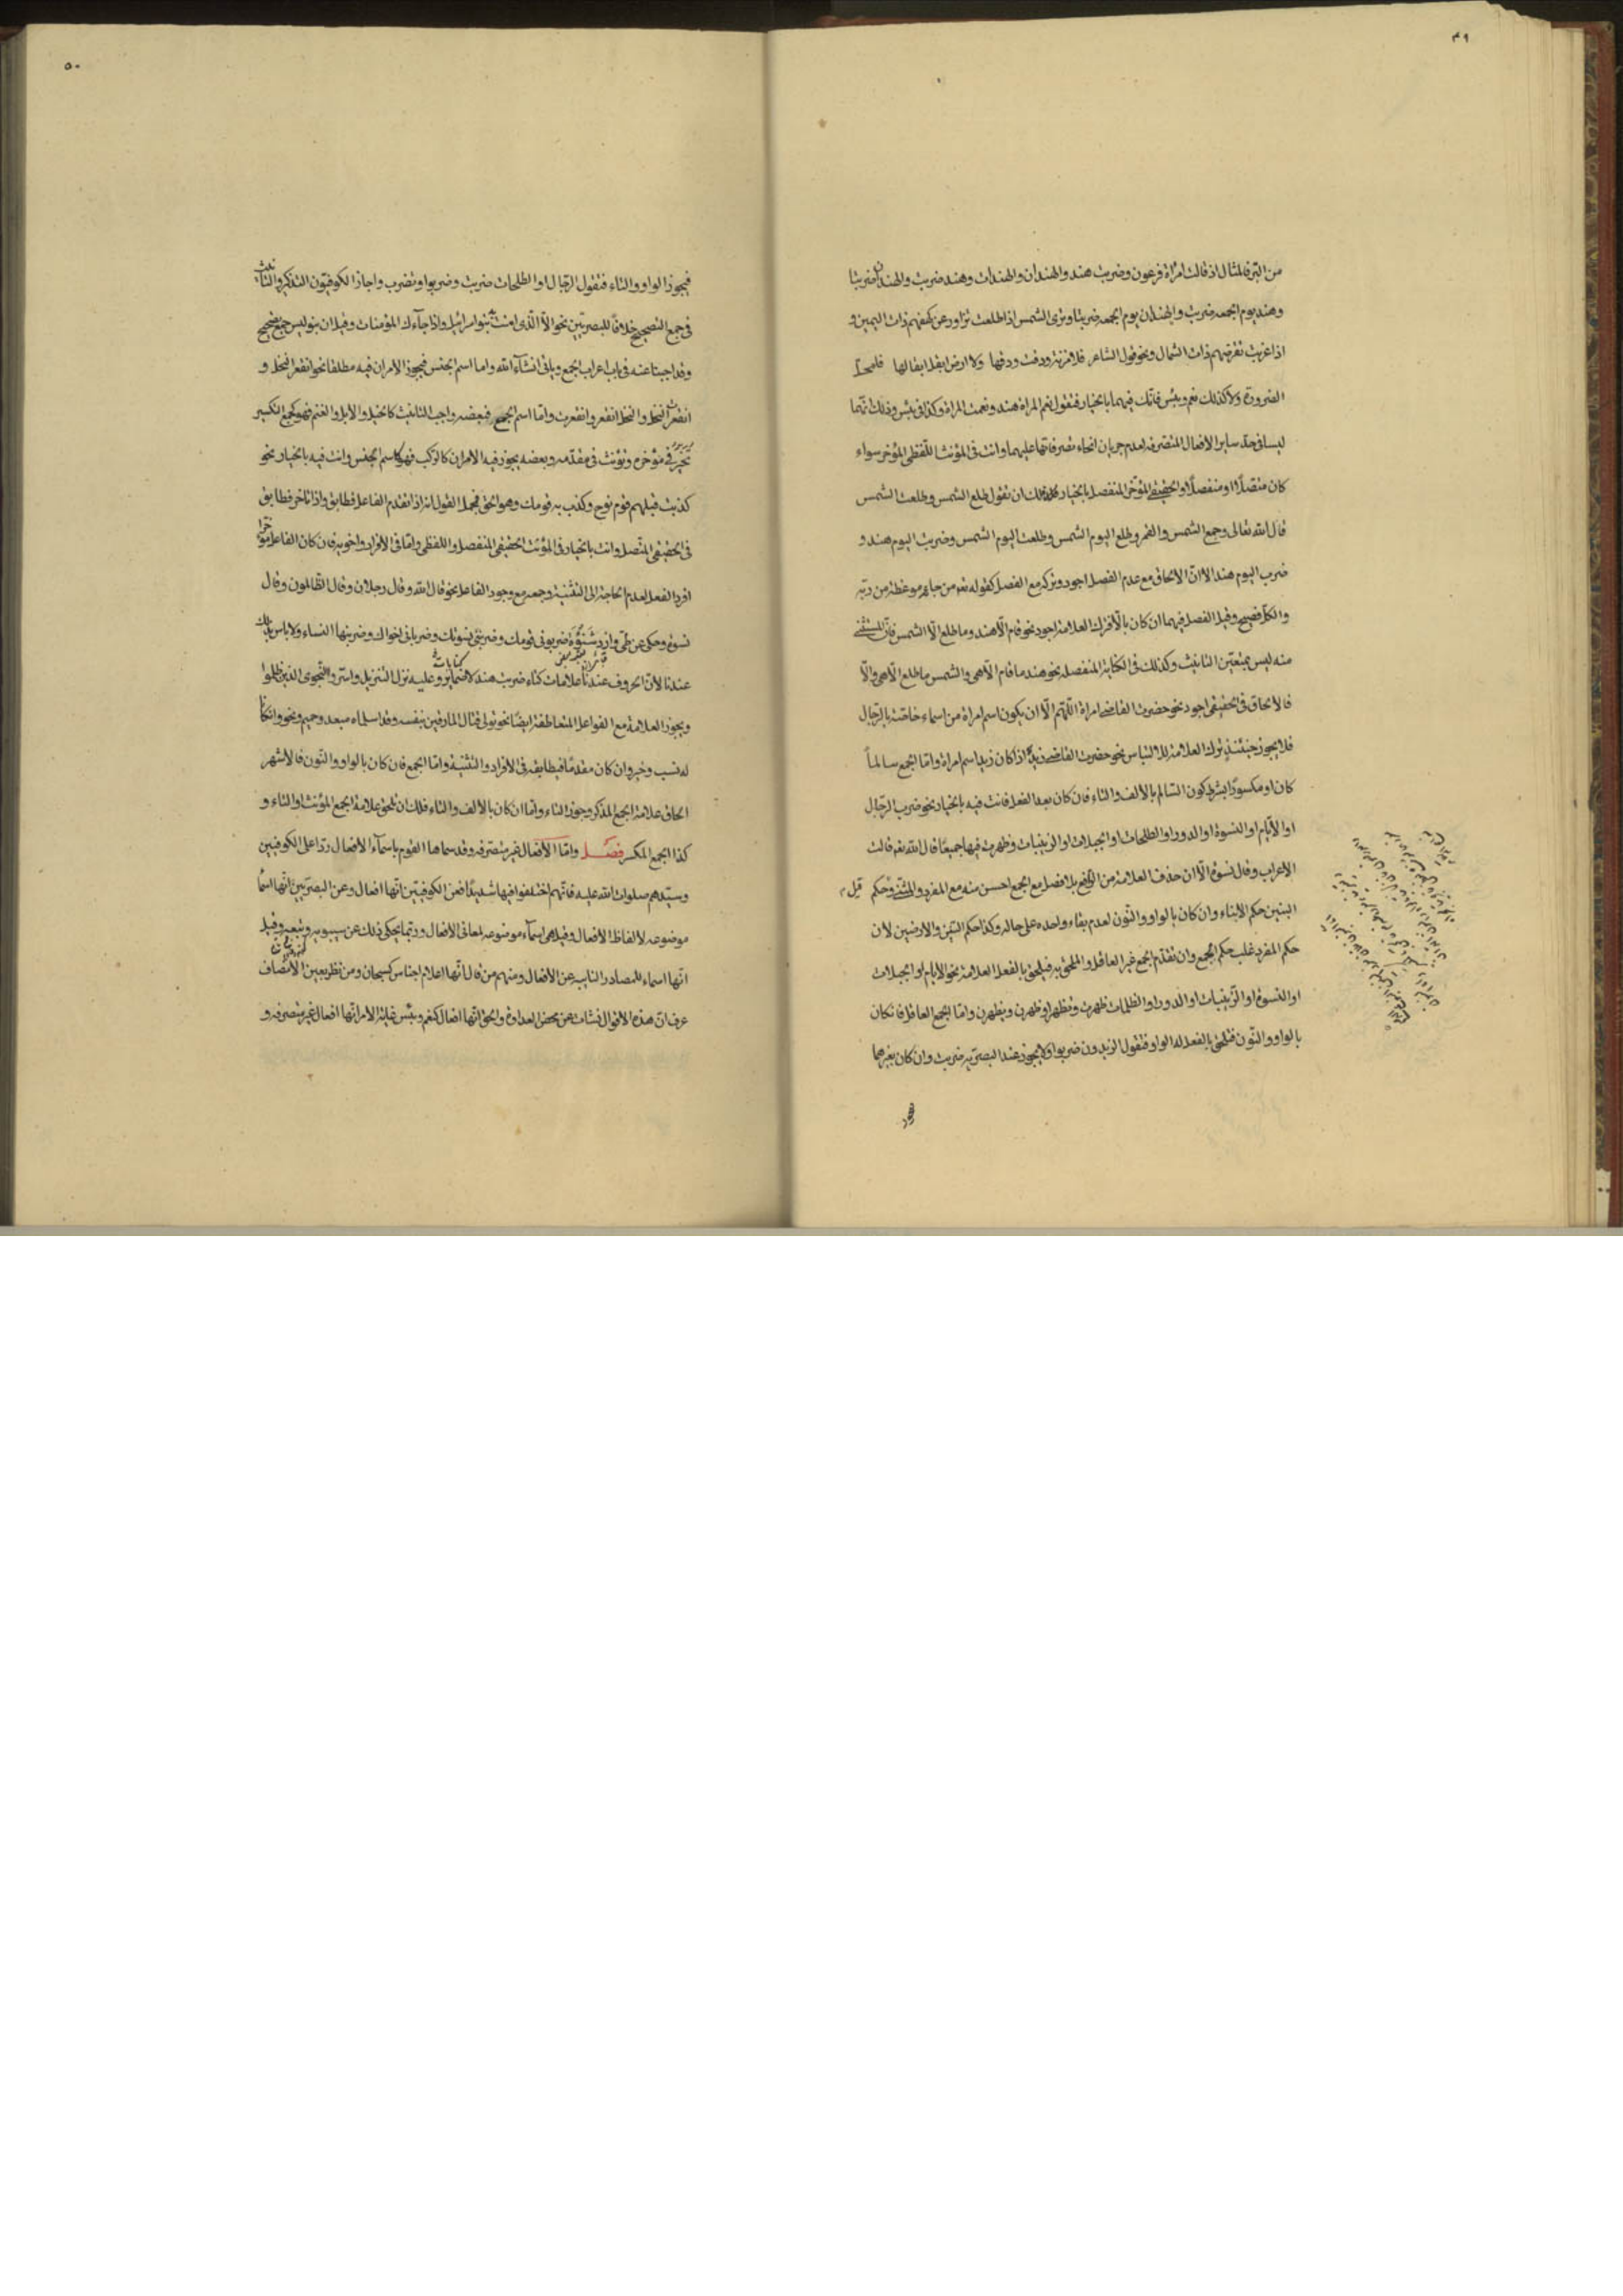 ٤٩
من التبر فالمثال اذ قالت امرأة فرعون وضربت هند والهندان والهندات وهند ضربت والهندان ضربتا
وهند يوم الجمعه ضربت والهندان يوم الجمعه ضربتا وترى الشمس اذا طلعت تزاور عن كهفهم ذات اليمين و
اذا غربت تقرضهم ذات الشمال ونحو قول الشاعر فلا مزنة ودقت ودقها ولا ارض ابقل ابقالها
الضرورة ولا كذلك نعم وبئس فانك فيهما بالخيار فتقول نعم المراة هند ونعمت المراة وكذا في بئس وذلك انهما
ليسا في حد ساير الافعال المتصرفه لعدم جريان انحاء تصرفاتها عليهما وانت في المؤنث اللفظي المؤخر سواء
كان متصلا او منفصلا والحقيقي المؤخر المنفصل بالخيار فلك ان تقول طلع الشمس وطلعت الشمس
قال الله تعالى وجمع الشمس والقمر وطلع اليوم الشمس وطلعت اليوم الشمس وضربت اليوم هند و
ضرب اليوم هند الا ان الالحاق مع عدم الفصل اجود وتركه مع الفصل كقوله تعم من جاءه موعظة من ربه
والكل فصيح وقيل الفصل فيهما ان كان بالا فترك العلامة اجود نحو قام الا هند وما طلع الا الشمس فان المستثنى
منه ليس بمتعين التانيث وكذلك في الكناية المنفصله نحو هند ما قام الا هي والشمس ما طلع الا هي والا
فالالحاق في الحقيقي اجود نحو حضرت القاضي امراة اللهم الا ان يكون اسم امراة من اسماء خاصة بالرجال
فلا يجوز حينئذ ترك العلامة للالتباس نحو حضرت القاضي زيد اذا كان زيد اسم امراة واما الجمع سالماً
كان او مكسورا بشرط كون السالم بالالف والتاء فان كان بعد الفعل فانت فيه بالخيار نحو ضرب الرجال
او الايام او النسوة او الدور او الطلحات او الجبلات او الزينبات وظهرت فيها جميعا قال الله تعم قالت
الاعراب وقال نسوة الا ان حذف العلامة من الرافع بلا فصل مع الجمع احسن منه مع المفرد والمثنى وحكم
البنين حكم الابناء وان كان بالواو والنون لعدم بقاء واحده على حاله وكذا حكم السنين والارضين لان
حكم المفرد غلب حكم الجمع وان تقدم الجمع غير العاقل والملحق به فيلحق بالفعل العلامة نحو الايام او الجبلات
او النسوة او الزينبات او الدور او الظلمات ظهرت وتظهر او ظهرن ويظهرن واما الجمع العاقل فان كان
بالواو والنون فتلحق بالفعل له الواو فتقول الزيدون ضربوا ولا يجوز عند البصريه ضربت وان كان بغيرهما
فيجوز
٥٠
فيجوز الواو والتاء فتقول الرجال او الطلحات ضربت وضربوا وتضرب واجاز الكوفيون التذكير والتانيث
في جمع التصحيح خلافا للبصريين نحو الا الذي امنت به بنوا اسرائيل واذا جاءك المؤمنات وقيل ان بنو ليس جمع صحيح
وقد اجبنا عنه في باب اعراب الجمع وياتي انشاء الله واما اسم الجنس فيجوز الامران فيه مطلقا نحو انقعر النخل و
انقعرت النخل والنخل انقعر وانقعرت واما اسم الجمع فبعضه واجب التانيث كالخيل والابل والغنم فهو كجمع التكسير
تخير في مؤخره وتؤنث في مقدمه وبعضه يجوز فيه الامران كالركب فهو كاسم الجنس وانت فيه بالخيار نحو
كذبت قبلهم قوم نوح وكذب به قومك وهو الحق فمجمل القول انه اذا تقدم الفاعل فطابق واذا تاخر فطابق
في الحقيقي المتصل وانت بالخيار في المؤنث الحقيقي المنفصل واللفظي واما في الافراد واخويه فان كان الفاعل مؤخرا
افرد الفعل لعدم الحاجة الى التثنية وجمعه مع وجود الفاعل نحو قال الله وقال رجلان وقال الظالمون وقال
نسوة وحكى عن طي وازد شنوءة ضربوني قومك وضربنني نسوتك وضرباني اخواك وضربنها النساء ولا باس بذلك
عندنا لان الحروف عندنا علامات كتاء ضربت هند لا ضماير وعليه نزل التنزيل واسروا النجوى الذين ظلموا
ويجوز العلامة مع الفواعل المتعاطفة ايضا نحو تولى قتال المارقين بنفسه وقد اسلماه مبعد وحميم ونحو وان كانا
له نسب وخير وان كان مقدما فيطابقه في الافراد والتثنية واما الجمع فان كان بالواو والنون فالاشهر
الحاق علامة الجمع المذكر وجوز التاء واما ان كان بالالف والتاء فلك ان تلحق علامة الجمع المؤنث او التاء و
كذا الجمع المكسر فصل واما الافعال غير متصرفه وقد سماها القوم باسماء الافعال ردا على الكوفيين
وسيدهم صلوات الله عليه فانهم اختلفوا فيها شديدا فعن الكوفيين انها افعال وعن البصريين انها اسما
موضوعه لالفاظ الافعال وقيل هي اسماء موضوعه لمعاني الافعال وربما يحكى ذلك عن سيبويه وتبعيه وقيل
انها اسماء للمصادر النايبه عن الافعال ومنهم من قال انها اعلام اجناس كسبحان ومن نظر بعين الانصاف
عرف ان هذه الاقوال نشات عن محض العداوة والحق انها افعال كنعم وبئس غاية الامر انها افعال غير متصرفه و